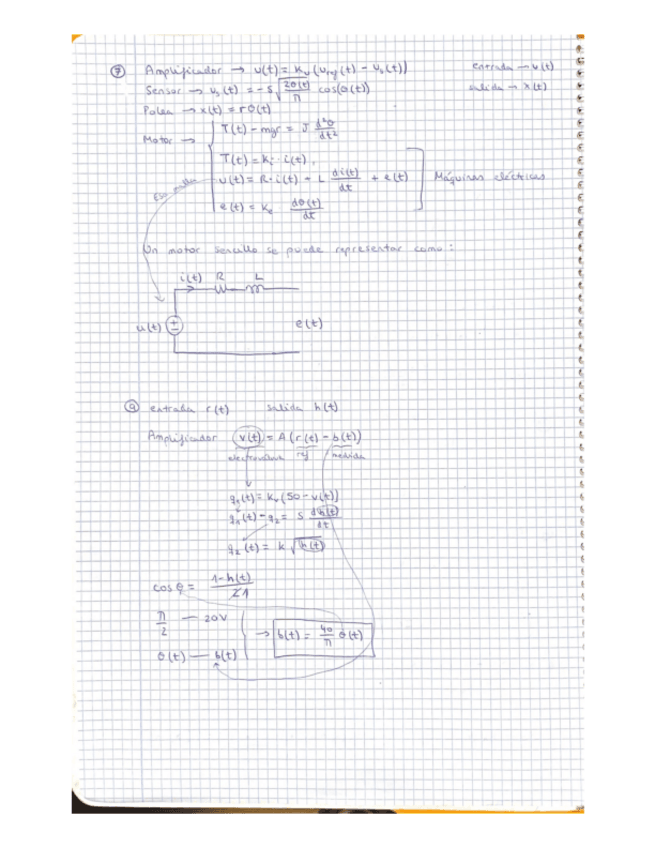 ⑦ Amplificador → u(t) = Kᵤ(u_ref(t) − uₛ(t)) entrada → u(t)
Sensor → uₛ(t) = −5 √(2θ(t)/π) cos(θ(t)) salida → x(t)
Polea → x(t) = rθ(t)
Motor → T(t) − mgr = J d²θ/dt²
T(t) = Kᵢ · i(t),
u(t) = R·i(t) + L di(t)/dt + e(t) Máquinas eléctricas
e(t) = Kₑ dθ(t)/dt
Esa malla
Un motor sencillo se puede representar como:
i(t) R L
u(t) e(t)
⑨ entrada r(t) salida h(t)
Amplificador v(t) = A(r(t) − b(t))
electroválvula ref medida
q₁(t) = Kᵥ(50 − v(t))
q₁(t) − q₂ = S dh(t)/dt
q₂(t) = k √h(t)
cos θ = 1−h(t)/1
π/2 — 20V
→ b(t) = 40/π θ(t)
θ(t) — b(t)